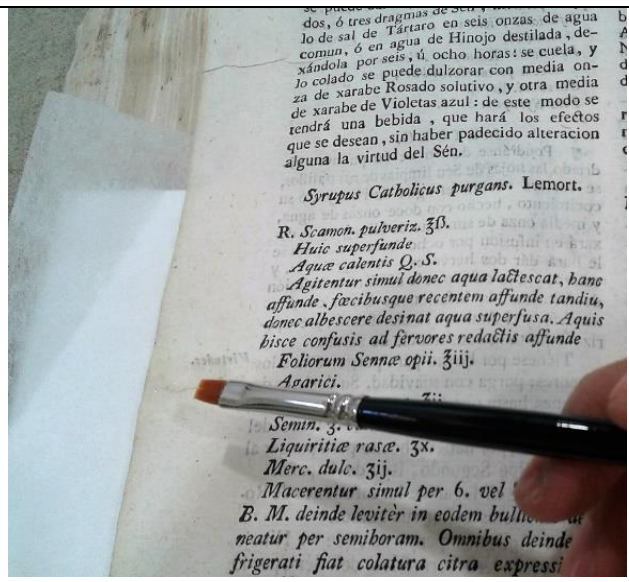 dos, ó tres dragmas de Sen,
lo de sal de Tártaro en seis onzas de agua
comun, ó en agua de Hinojo destilada, de-
xándola por seis, ú ocho horas: se cuela, y
lo colado se puede dulzorar con media on-
za de xarabe Rosado solutivo, y otra media
de xarabe de Violetas azul: de este modo se
tendrá una bebida, que hará los efectos
que se desean, sin haber padecido alteracion
alguna la virtud del Sén.
Syrupus Catholicus purgans. Lemort.
R. Scamon. pulveriz. ℥ß.
Huic superfunde
Aquæ calentis Q. S.
Agitentur simul donec aqua lactescat, hanc
affunde, fæcibusque recentem affunde tandiu,
donec albescere desinat aqua superfusa. Aquis
hisce confusis ad fervores redactis affunde
Foliorum Sennæ opii. ℥iij.
Agarici.
Semin.
Liquiritiæ rasæ. ʒx.
Merc. dulc. ʒij.
Macerentur simul per 6. vel
B. M. deinde levitèr in eodem
neatur per semihoram. Omnibus deinde
frigerati fiat colatura citra expressi